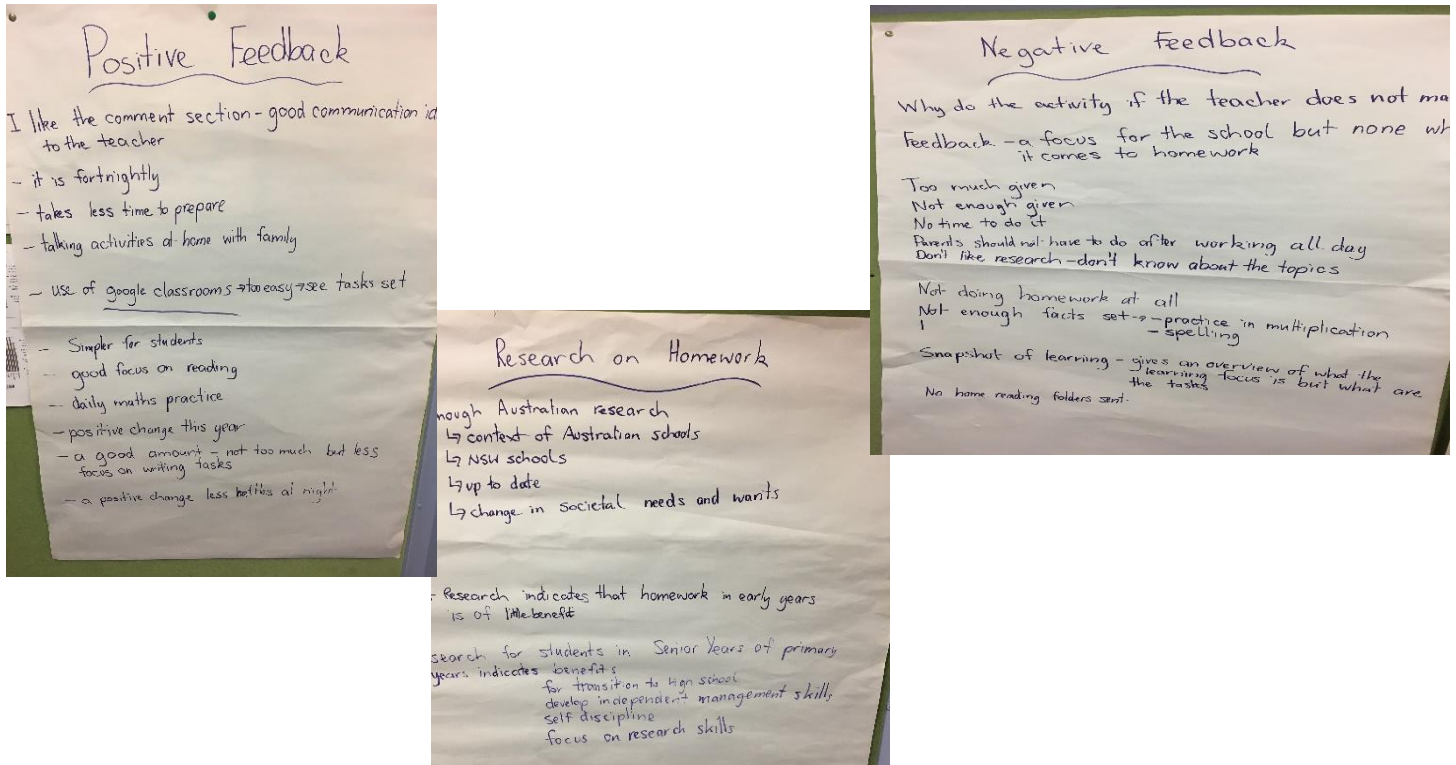 Positive Feedback
I like the comment section - good communication
to the teacher
- it is fortnightly
- takes less time to prepare
- talking activities at home with family
- use of google classrooms → too easy → see tasks set
- Simpler for students
- good focus on reading
- daily maths practice
- positive change this year
- a good amount - not too much but less
focus on writing tasks
- a positive change less at night
Research on Homework
Australian research
↳ context of Australian schools
↳ NSW schools
↳ up to date
↳ change in societal needs and wants
- Research indicates that homework in early years
is of little benefit
for students in Senior Years of primary
years indicates benefits
for transition to high school
develop independent management skills
self discipline
focus on research skills
Negative Feedback
Why do the activity if the teacher does not
Feedback - a focus for the school but none
it comes to homework
Too much given
Not enough given
No time to do it
Parents should not have to do after working all day
Don't like research - don't know about the topics
Not doing homework at all
Not enough facts set → - practice in multiplication
- spelling
Snapshot of learning - gives an overview of what the
learning focus is but what are
the tasks
No home reading folders sent.